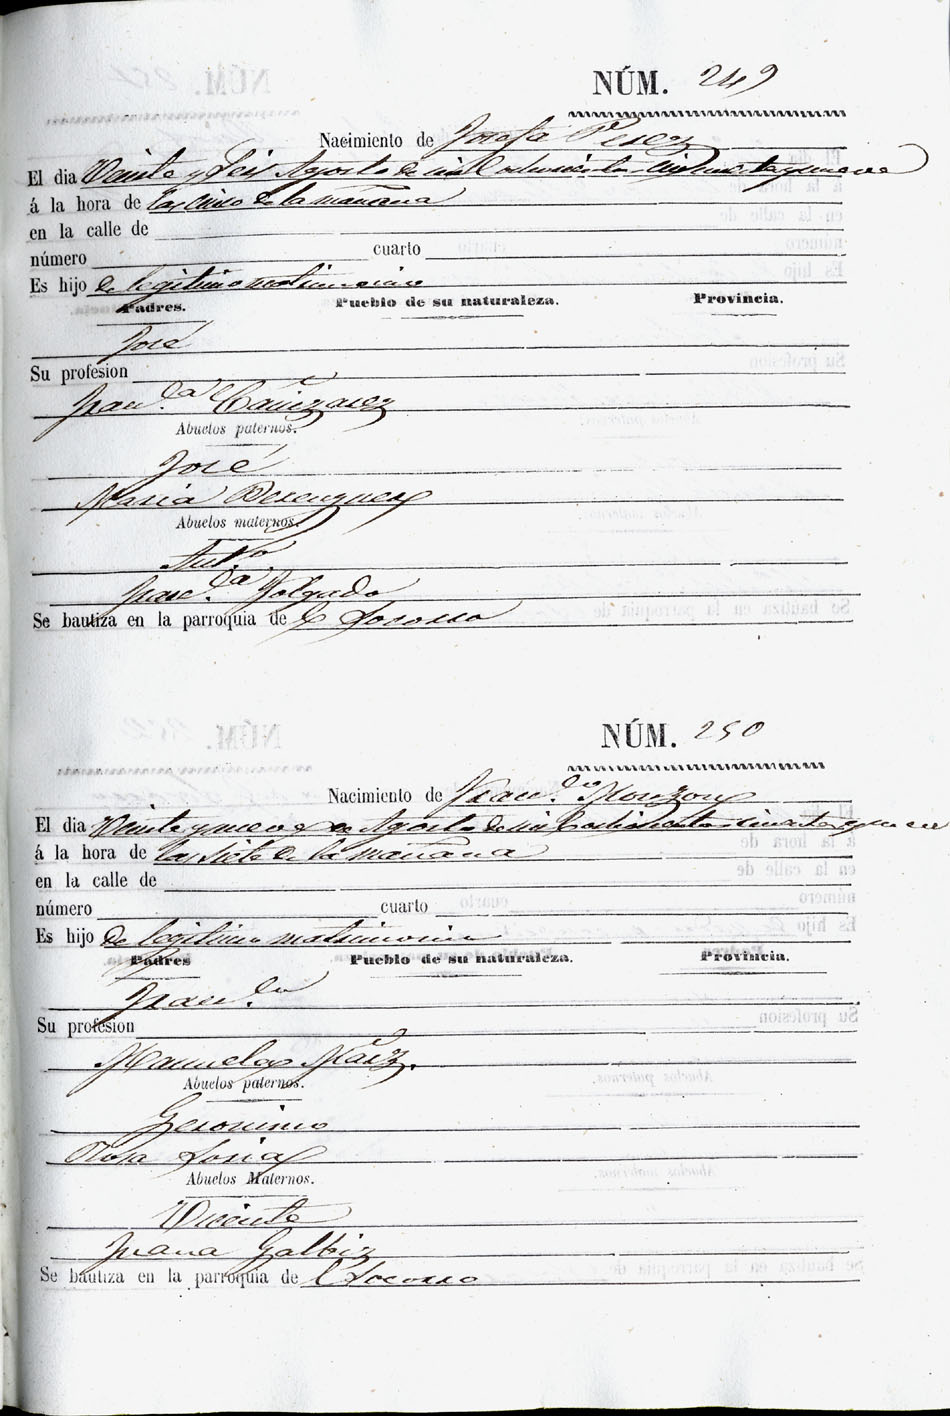 NÚM. 249
Nacimiento de Josefa Perez
El dia Veinte y Seis Agosto de mil ochocientos cincuenta y nueve
á la hora de las cinco de la mañana
en la calle de
número cuarto
Es hijo de legitimo matrimonio
Padres. Pueblo de su naturaleza. Provincia.
José
Su profesion
Fran.ca Cañizarez
Abuelos paternos.
José
Maria Berenguer
Abuelos maternos.
Ant.o
Fran.ca Folgado
Se bautiza en la parroquia de el Socorro
NÚM. 250
Nacimiento de Fran.co Monzon
El dia Veinte y nueve de Agosto de mil ochocientos cincuenta y nueve
á la hora de las siete de la mañana
en la calle de
número cuarto
Es hijo de legitimo matrimonio
Padres Pueblo de su naturaleza. Provincia.
Fran.co
Su profesion
Manuela
Abuelos paternos.
Geronimo
Rosa Soria
Abuelos Maternos.
Vicente
Juana Galbiz
Se bautiza en la parroquia de el Socorro